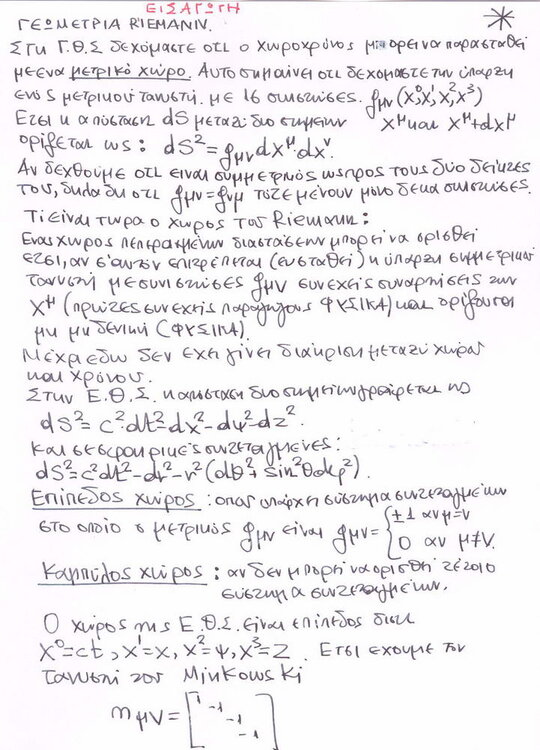 ΕΙΣΑΓΩΓΗ
ΓΕΩΜΕΤΡΙΑ RIEMANN.
Στη Γ.Θ.Σ δεχομαστε οτι ο χωροχρόνος μπορει να παρασταθεί
με ενα μετρικό χώρο. Αυτο σημαίνει οτι δεχομαστε την υπαρξη
ενός μετρικού τανυστή. με 16 συνιστώσες. gμν(x⁰,x¹,x²,x³)
Ετσι η απόσταση dS μεταξύ δυο σημειων x^μ και x^μ+dx^μ
ορίζεται ως: dS²=gμν dx^μ dx^ν.
Αν δεχθούμε οτι ειναι συμμετρικός ως προς τους δύο δείκτες
του, δηλαδη οτι gμν=gνμ τοτε μένουν μόνο δεκα συνιστώσες.
Τι είναι τωρα ο χωρος του Riemann:
Ενας χωρος πεπερασμένων διαστάσεων μπορεί να ορισθεί
ετσι, αν σ'αυτόν επιτρέπεται (ευσταθεί) η υπαρξη συμμετρικού
τανυστή με συνιστώσες gμν συνεχείς συναρτήσεις των
x^μ (πρώτες συνεχής παραγώγους ΦΥΣΙΚΑ) και ορίζουσα
μη μηδενική (ΦΥΣΙΚΑ).
Μέχρι εδω δεν εχει γίνει διακριση μεταξύ χώρου
και χρόνου.
Στην Ε.Θ.Σ. η αποσταση δυο σημείων γραφεται ως
dS²=c²dt²-dx²-dψ²-dz².
και σε σφαιρικές συντεταγμένες:
dS²=c²dt²-dr²-r²(dθ²+sin²θdφ²).
Επίπεδος χωρος: οπου υπάρχει σύστημα συντεταγμένων
στο οποίο ο μετρικός gμν είναι gμν={±1 αν μ=ν
0 αν μ≠ν.
Καμπύλος χωρος: αν δεν μπορεί να ορισθεί τέτοιο
σύστημα συντεταγμένων.
Ο χώρος της Ε.Θ.Σ. είναι επίπεδος διοτι
x⁰=ct, x¹=x, x²=ψ, x³=z. Ετσι εχουμε τον
τανυστή του Minkowski
ημν=[1 -1 -1 -1]